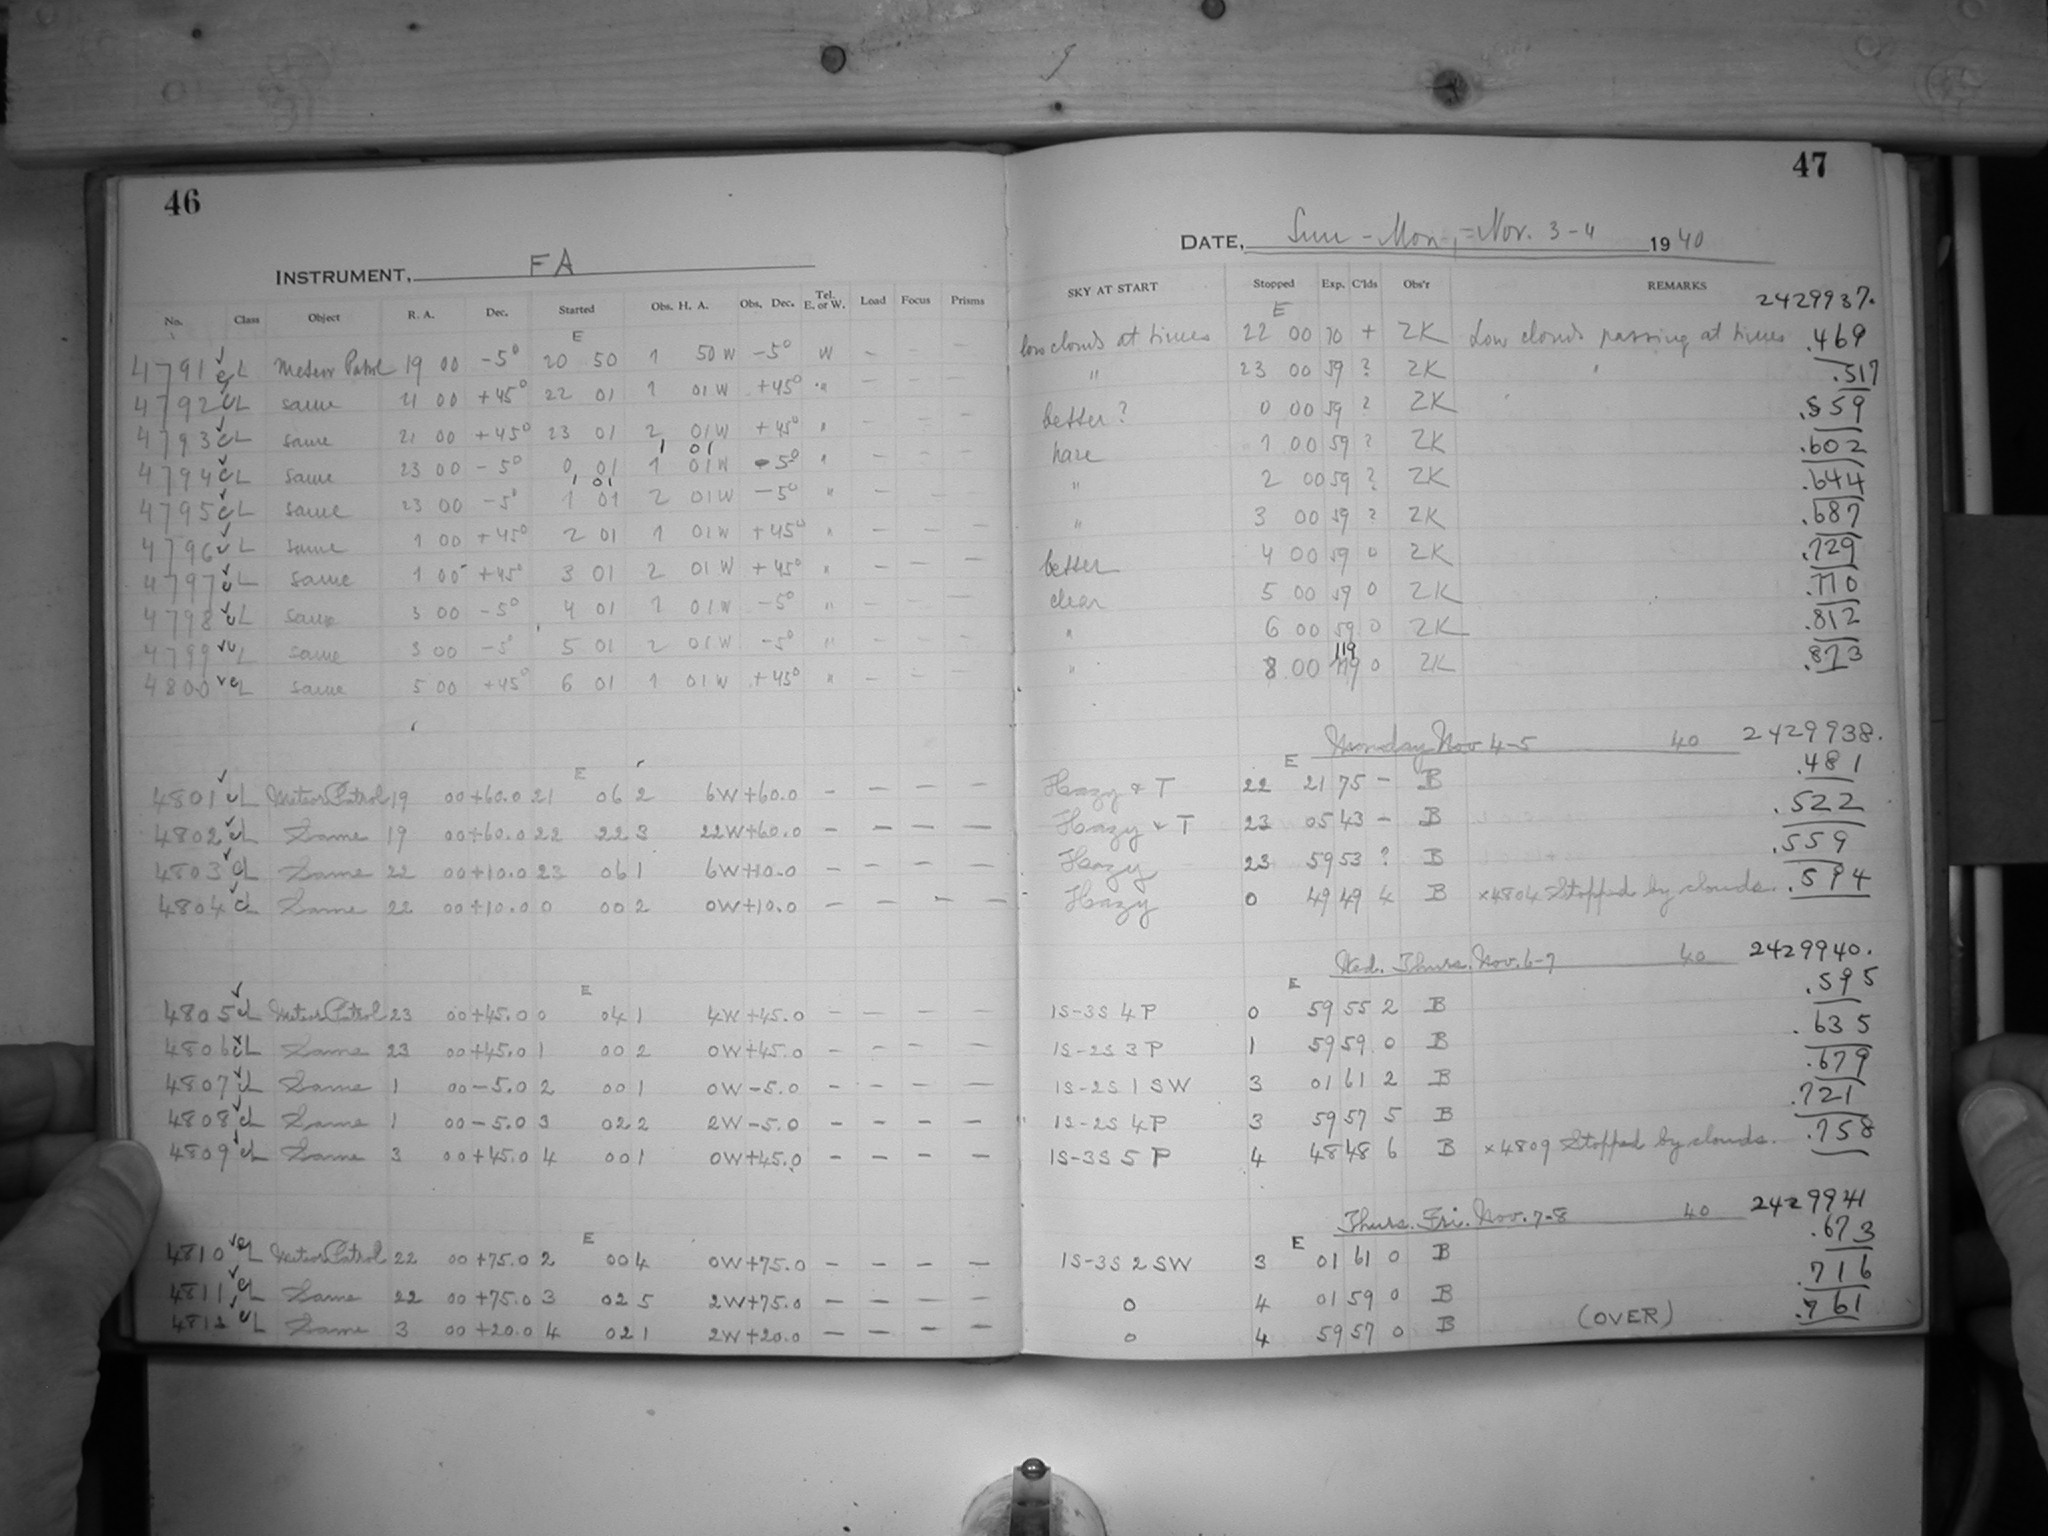 46
INSTRUMENT, FA
No. Class Object R. A. Dec. Started Obs. H. A. Obs. Dec. Tel. E. or W. Load Focus Prisms
E
4791 L Meteor Patrol 19 00 -5° 20 50 1 50 W -5° W - - -
4792 CL same 21 00 +45° 22 01 1 01 W +45° " - - -
4793 CL same 21 00 +45° 23 01 2 01 W +45° " - - -
1 01
4794 CL same 23 00 -5° 0 01 1 01 W -5° " - - -
1 01
4795 CL same 23 00 -5° 1 01 2 01 W -5° " - - -
4796 CL same 1 00 +45° 2 01 1 01 W +45° " - - -
4797 CL same 1 00 +45° 3 01 2 01 W +45° " - - -
4798 CL same 3 00 -5° 4 01 1 01 W -5° " - - -
4799 CL same 3 00 -5° 5 01 2 01 W -5° " - - -
4800 CL same 5 00 +45° 6 01 1 01 W +45° " - - -
E
4801 CL Meteor Patrol 19 00 +60.0 21 06 2 6W +60.0 - - - -
4802 CL Same 19 00 +60.0 22 22 3 22W +60.0 - - - -
4803 CL Same 22 00 +10.0 23 06 1 6W +10.0 - - - -
4804 CL Same 22 00 +10.0 0 00 2 0W +10.0 - - - -
E
4805 CL Meteor Patrol 23 00 +45.0 0 04 1 4W +45.0 - - - -
4806 CL Same 23 00 +45.0 1 00 2 0W +45.0 - - - -
4807 CL Same 1 00 -5.0 2 00 1 0W -5.0 - - - -
4808 CL Same 1 00 -5.0 3 02 2 2W -5.0 - - - -
4809 CL Same 3 00 +45.0 4 00 1 0W +45.0 - - - -
E
4810 CL Meteor Patrol 22 00 +75.0 2 00 4 0W +75.0 - - - -
4811 CL Same 22 00 +75.0 3 02 5 2W +75.0 - - - -
4812 CL Same 3 00 +20.0 4 02 1 2W +20.0 - - - -
47
DATE, Sun - Mon, = Nov. 3-4 1940
SKY AT START Stopped Exp. C'lds Obs'r REMARKS
2429937.
E
low clouds at times 22 00 70 + ZK Low clouds passing at times .469
" 23 00 59 ? ZK " .517
better? 0 00 59 ? ZK .559
haze 1 00 59 ? ZK .602
" 2 00 59 ? ZK .644
" 3 00 59 ? ZK .687
better 4 00 59 0 ZK .729
clear 5 00 59 0 ZK .770
" 6 00 59 0 ZK .812
119
" 8 00 119 0 ZK .873
Monday Nov 4-5 40 2429938.
E
Hazy & T 22 21 75 - B .481
Hazy & T 23 05 43 - B .522
Hazy 23 59 53 ? B .559
Hazy 0 49 49 4 B ×4804 Stopped by clouds. .594
Wed. Thurs. Nov. 6-7 40 2429940.
E
1S-3S 4 P 0 59 55 2 B .595
1S-2S 3 P 1 59 59 0 B .635
1S-2S 1 SW 3 01 61 2 B .679
1S-2S 4P 3 59 57 5 B .721
1S-3S 5 P 4 48 48 6 B ×4809 Stopped by clouds. .758
Thurs. Fri. Nov. 7-8 40 2429941
E
1S-3S 2 SW 3 01 61 0 B .673
0 4 01 59 0 B .716
0 4 59 57 0 B (OVER) .761